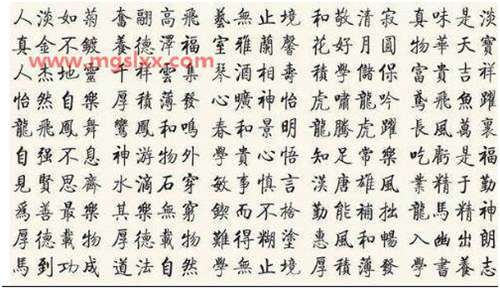 人淡如菊 奮翮高飛 藝無止境 和敬清寂 真味是淡
真金不鍍 養德澤福 室雅蘭馨 花好月圓 物華天寶
www.mgslxx.com
人杰地靈 千祥雲集 琴酒相壽 學儲 富貴吉祥
怡然自樂 厚積薄發 心曠神怡 虎嘯龍吟 鳶飛魚躍
龍飛鳳舞 鸞鳳和鳴 春和景明 龍騰虎躍 長風萬里
自強不息 神游物外 學貴心悟 知足常樂 吃虧是福
見賢思齊 水滴石穿 敏事慎言 漢唐雄風 業精于勤
爲善最樂 其樂無窮 鍥而不捨 勤能補拙 龍馬精神
厚德載物 厚德載物 難得糊塗 惠風和暢 入幽出朗
馬到功成 道法自然 學無止境 厚積薄發 學書養志